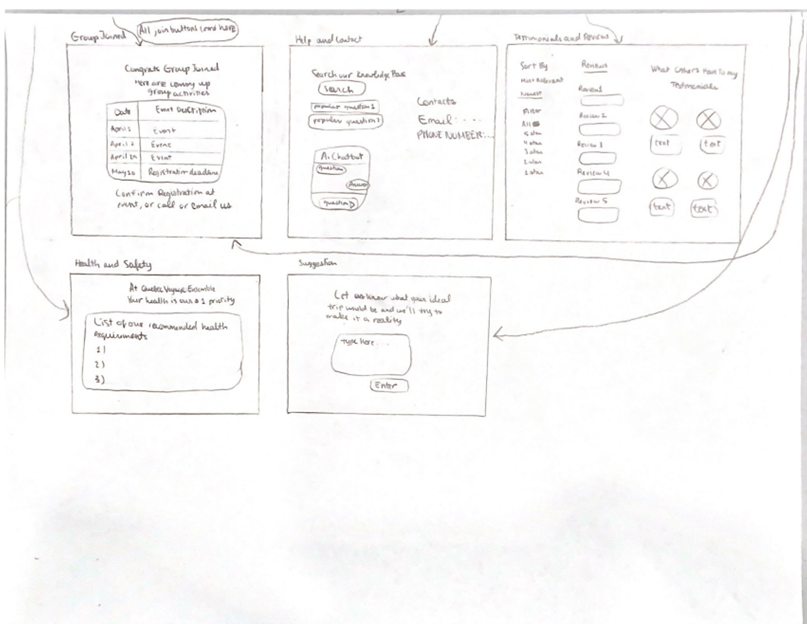 All join buttons lead here
Group Joined
Congrats Group Joined
Here are coming up
group activities
Date
Event Description
April 1
Event
April 7
Event
April 20
Event
May 20
Registration deadline
Confirm Registration at
event, or call or email us
Help and Contact
Search our Knowledge Base
Search
popular question 1
popular question 2
Ai Chatbot
question
Answer
question
Contacts
Email: . . . .
PHONE NUMBER: . . .
Testimonials and Reviews
Sort By
Most Relevant
Newest
Filter
All
5 star
4 star
3 star
2 star
1 star
Reviews
Review 1
Review 2
Review 3
Review 4
Review 5
What Others Have To say
Testimonials
text
text
text
text
Health and Safety
At
Your health is our # 1 priority
List of our recommended health
requirements
1)
2)
3)
Suggestion
Let us know what your ideal
trip would be and we'll try to
make it a reality
Type here . . .
Enter